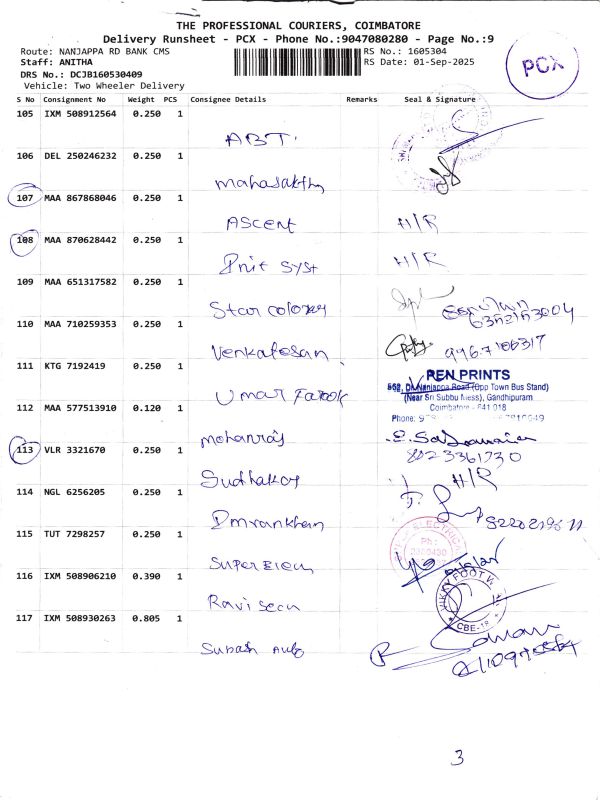 THE PROFESSIONAL COURIERS, COIMBATORE
Delivery Runsheet - PCX - Phone No.:9047080280 - Page No.:9
Route: NANJAPPA RD BANK CMS
RS No.: 1605304
Staff: ANITHA
RS Date: 01-Sep-2025
DRS No.: DCJB160530409
Vehicle: Two Wheeler Delivery
PCX
S No Consignment No Weight PCS Consignee Details Remarks Seal & Signature
105 IXM 508912564 0.250 1
ABT.
106 DEL 250246232 0.250 1
mahasakthy
107 MAA 867868046 0.250 1
ASCENT H/R
108 MAA 870628442 0.250 1
Init SYST H/R
109 MAA 651317582 0.250 1
Star colony
110 MAA 710259353 0.250 1
Venkatesan
111 KTG 7192419 0.250 1
Umar Farook
REN PRINTS
(Opp Town Bus Stand)
(Near Sri Subbu Mess), Gandhipuram
Coimbatore - 641 018
Phone:
112 MAA 577513910 0.120 1
mohanraj
113 VLR 3321670 0.250 1
8023361730
Sudhakar H/R
114 NGL 6256205 0.250 1
Imrankhan
115 TUT 7298257 0.250 1
ELECTRICAL
Ph :
Super Elecu
116 IXM 508906210 0.390 1
VIKKY FOOT W
CBE-18
Ravi secu
117 IXM 508930263 0.805 1
Subash Auto
3